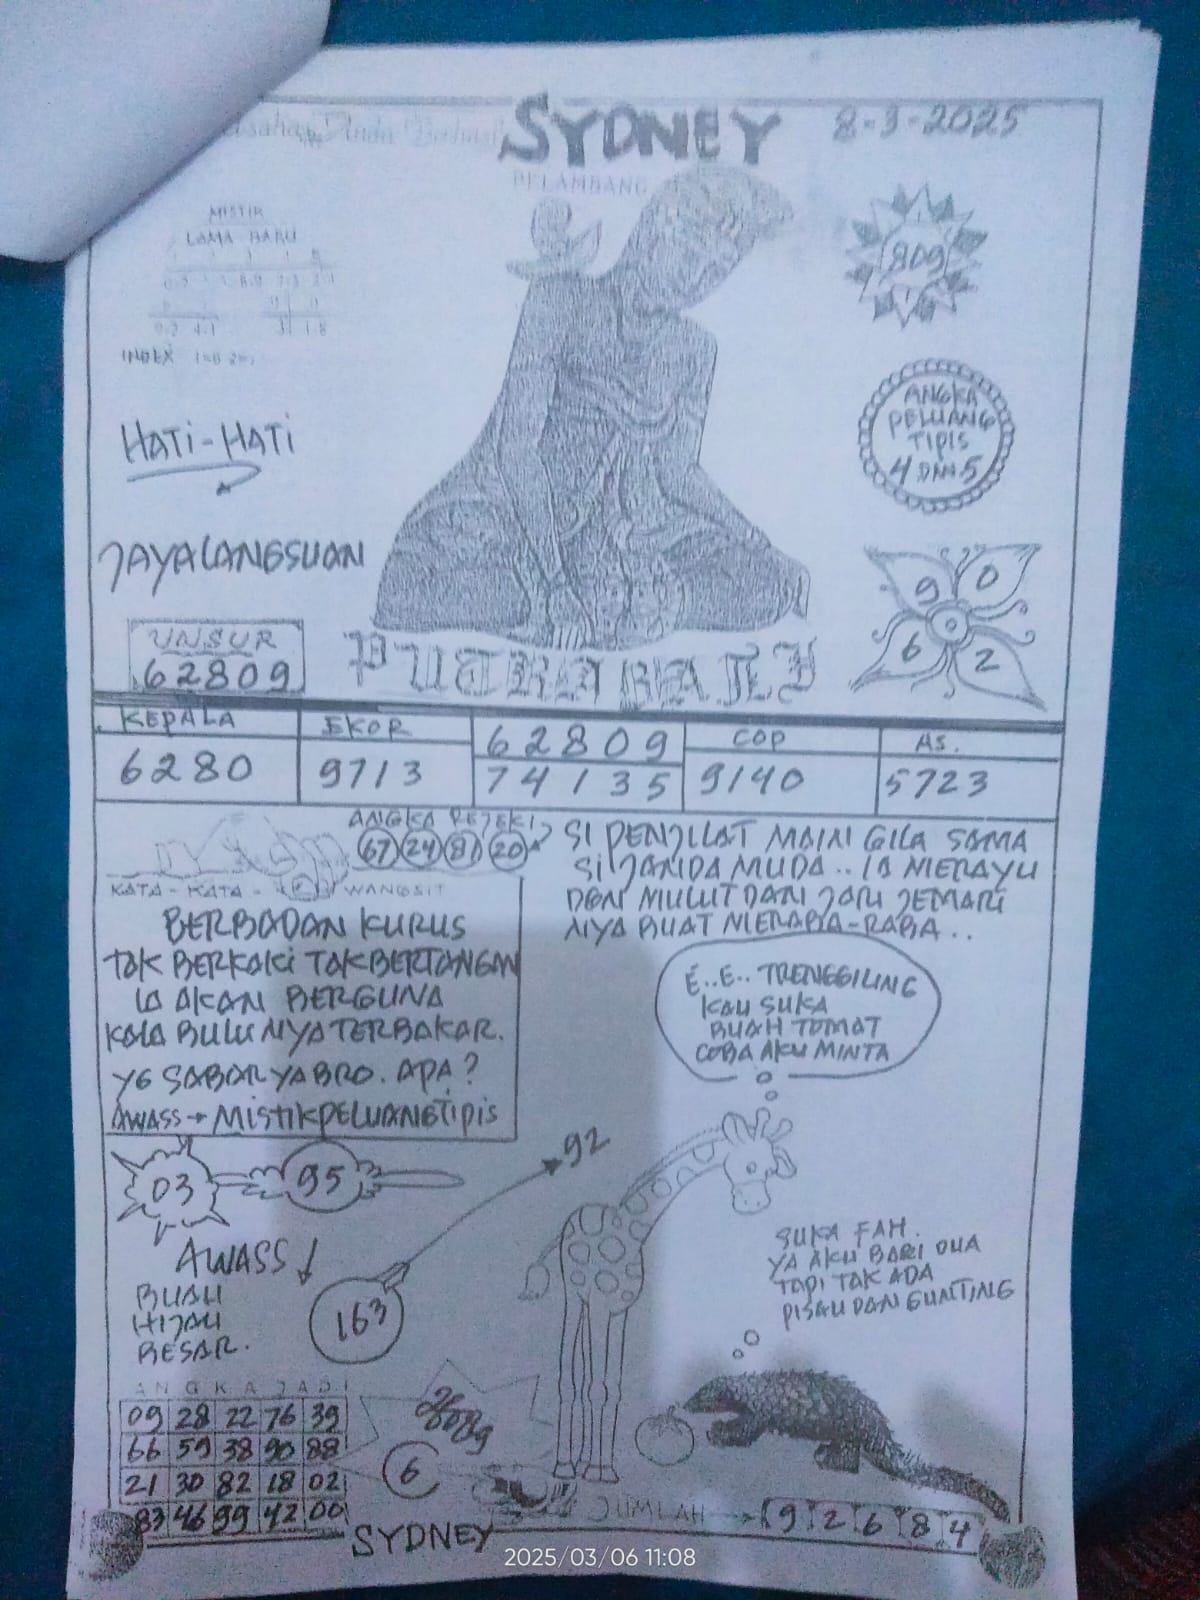 SYDNEY
8-3-2025
PELAMBANG
MISTIK
LAMA BARU
INDEX
809
HATI-HATI
ANGKA
PELUANG
TIPIS
4 DAN 5
JAYALANGSUAN
9 0
6 2
UNSUR
62809
PUTRA BALI
KEPALA EKOR 62809 COP AS.
6280 9713 74135 9140 5723
ANGKA REJEKI
67 24 81 20
SI PENJILAT MAIN GILA SAMA
SI JANDA MUDA.. IA MERAYU
DAN MULUT DAN JARI JEMARI
NYA BUAT MERABA-RABA..
KATA-KATA - WANGSIT
BERBADAN KURUS
TAK BERKAKI TAK BERTANGAN
IA AKAN BERGUNA
KALA BULU NYA TERBAKAR.
YG SABAR YA BRO. APA?
AWASS → MISTIK PELUANG TIPIS
E..E.. TRENGGILING
KAU SUKA
BUAH TOMAT
COBA AKU MINTA
03 95
92
AWASS ↓
BUAH
HIJAU
BESAR.
163
SUKA FAH.
YA AKU BARI DUA
TAPI TAK ADA
PISAU DAN GUNTING
ANGKA JADI
09 28 22 76 39
66 59 38 90 88
21 30 82 18 02
83 46 99 42 00
6
JUMLAH → 9 2 6 8 4
SYDNEY
2025/03/06 11:08